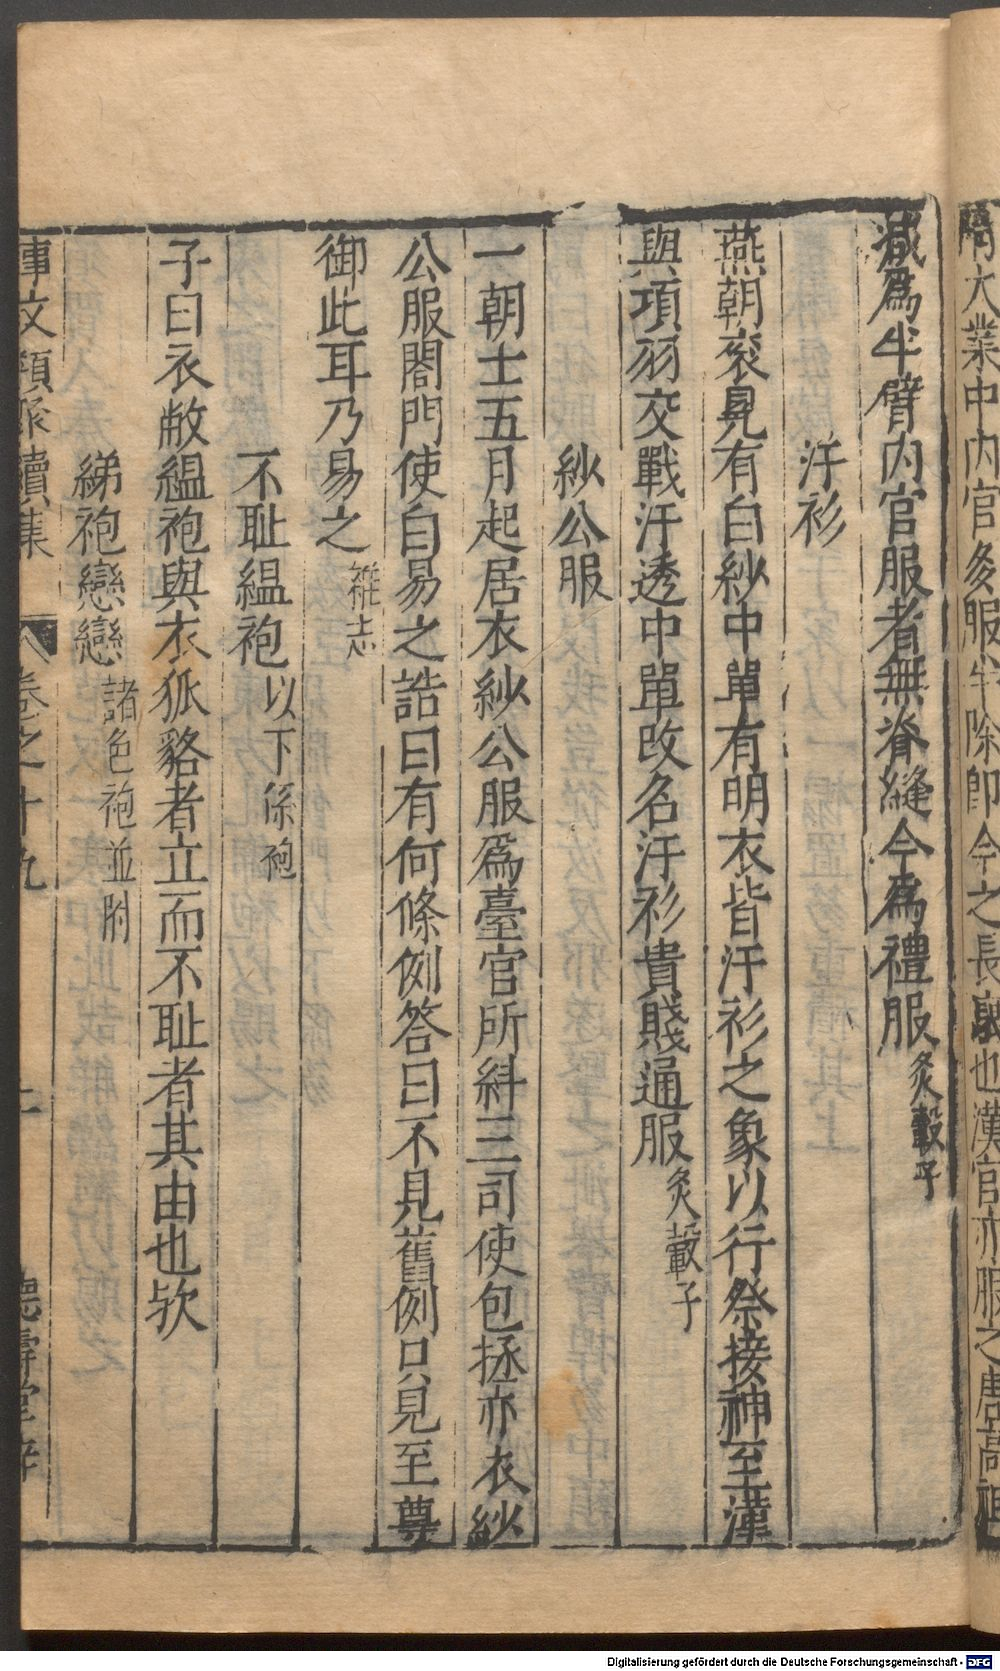 隋大業中內官多服半除卽今之長𧝓也漢官亦服之唐高祖
減爲半臂內官服者無脊縫今爲禮服炙轂子
汗衫
燕朝袞冕有白紗中單有明衣皆汗衫之象以行祭接神至漢
與項羽交戰汗透中單改名汗衫貴賤通服炙轂子
紗公服
一朝士五月起居衣紗公服爲臺官所糾三司使包拯亦衣紗
公服閤門使白易之誥曰有何條例答曰不見舊例只見至尊
御此耳乃易之雜志
不耻縕袍以下係袍
子曰衣敝縕袍與衣狐貉者立而不耻者其由也歟
綈袍戀戀諸色袍並附
事文類聚續集 卷之十九 二 德壽堂梓
Digitalisierung gefördert durch die Deutsche Forschungsgemeinschaft - DFG